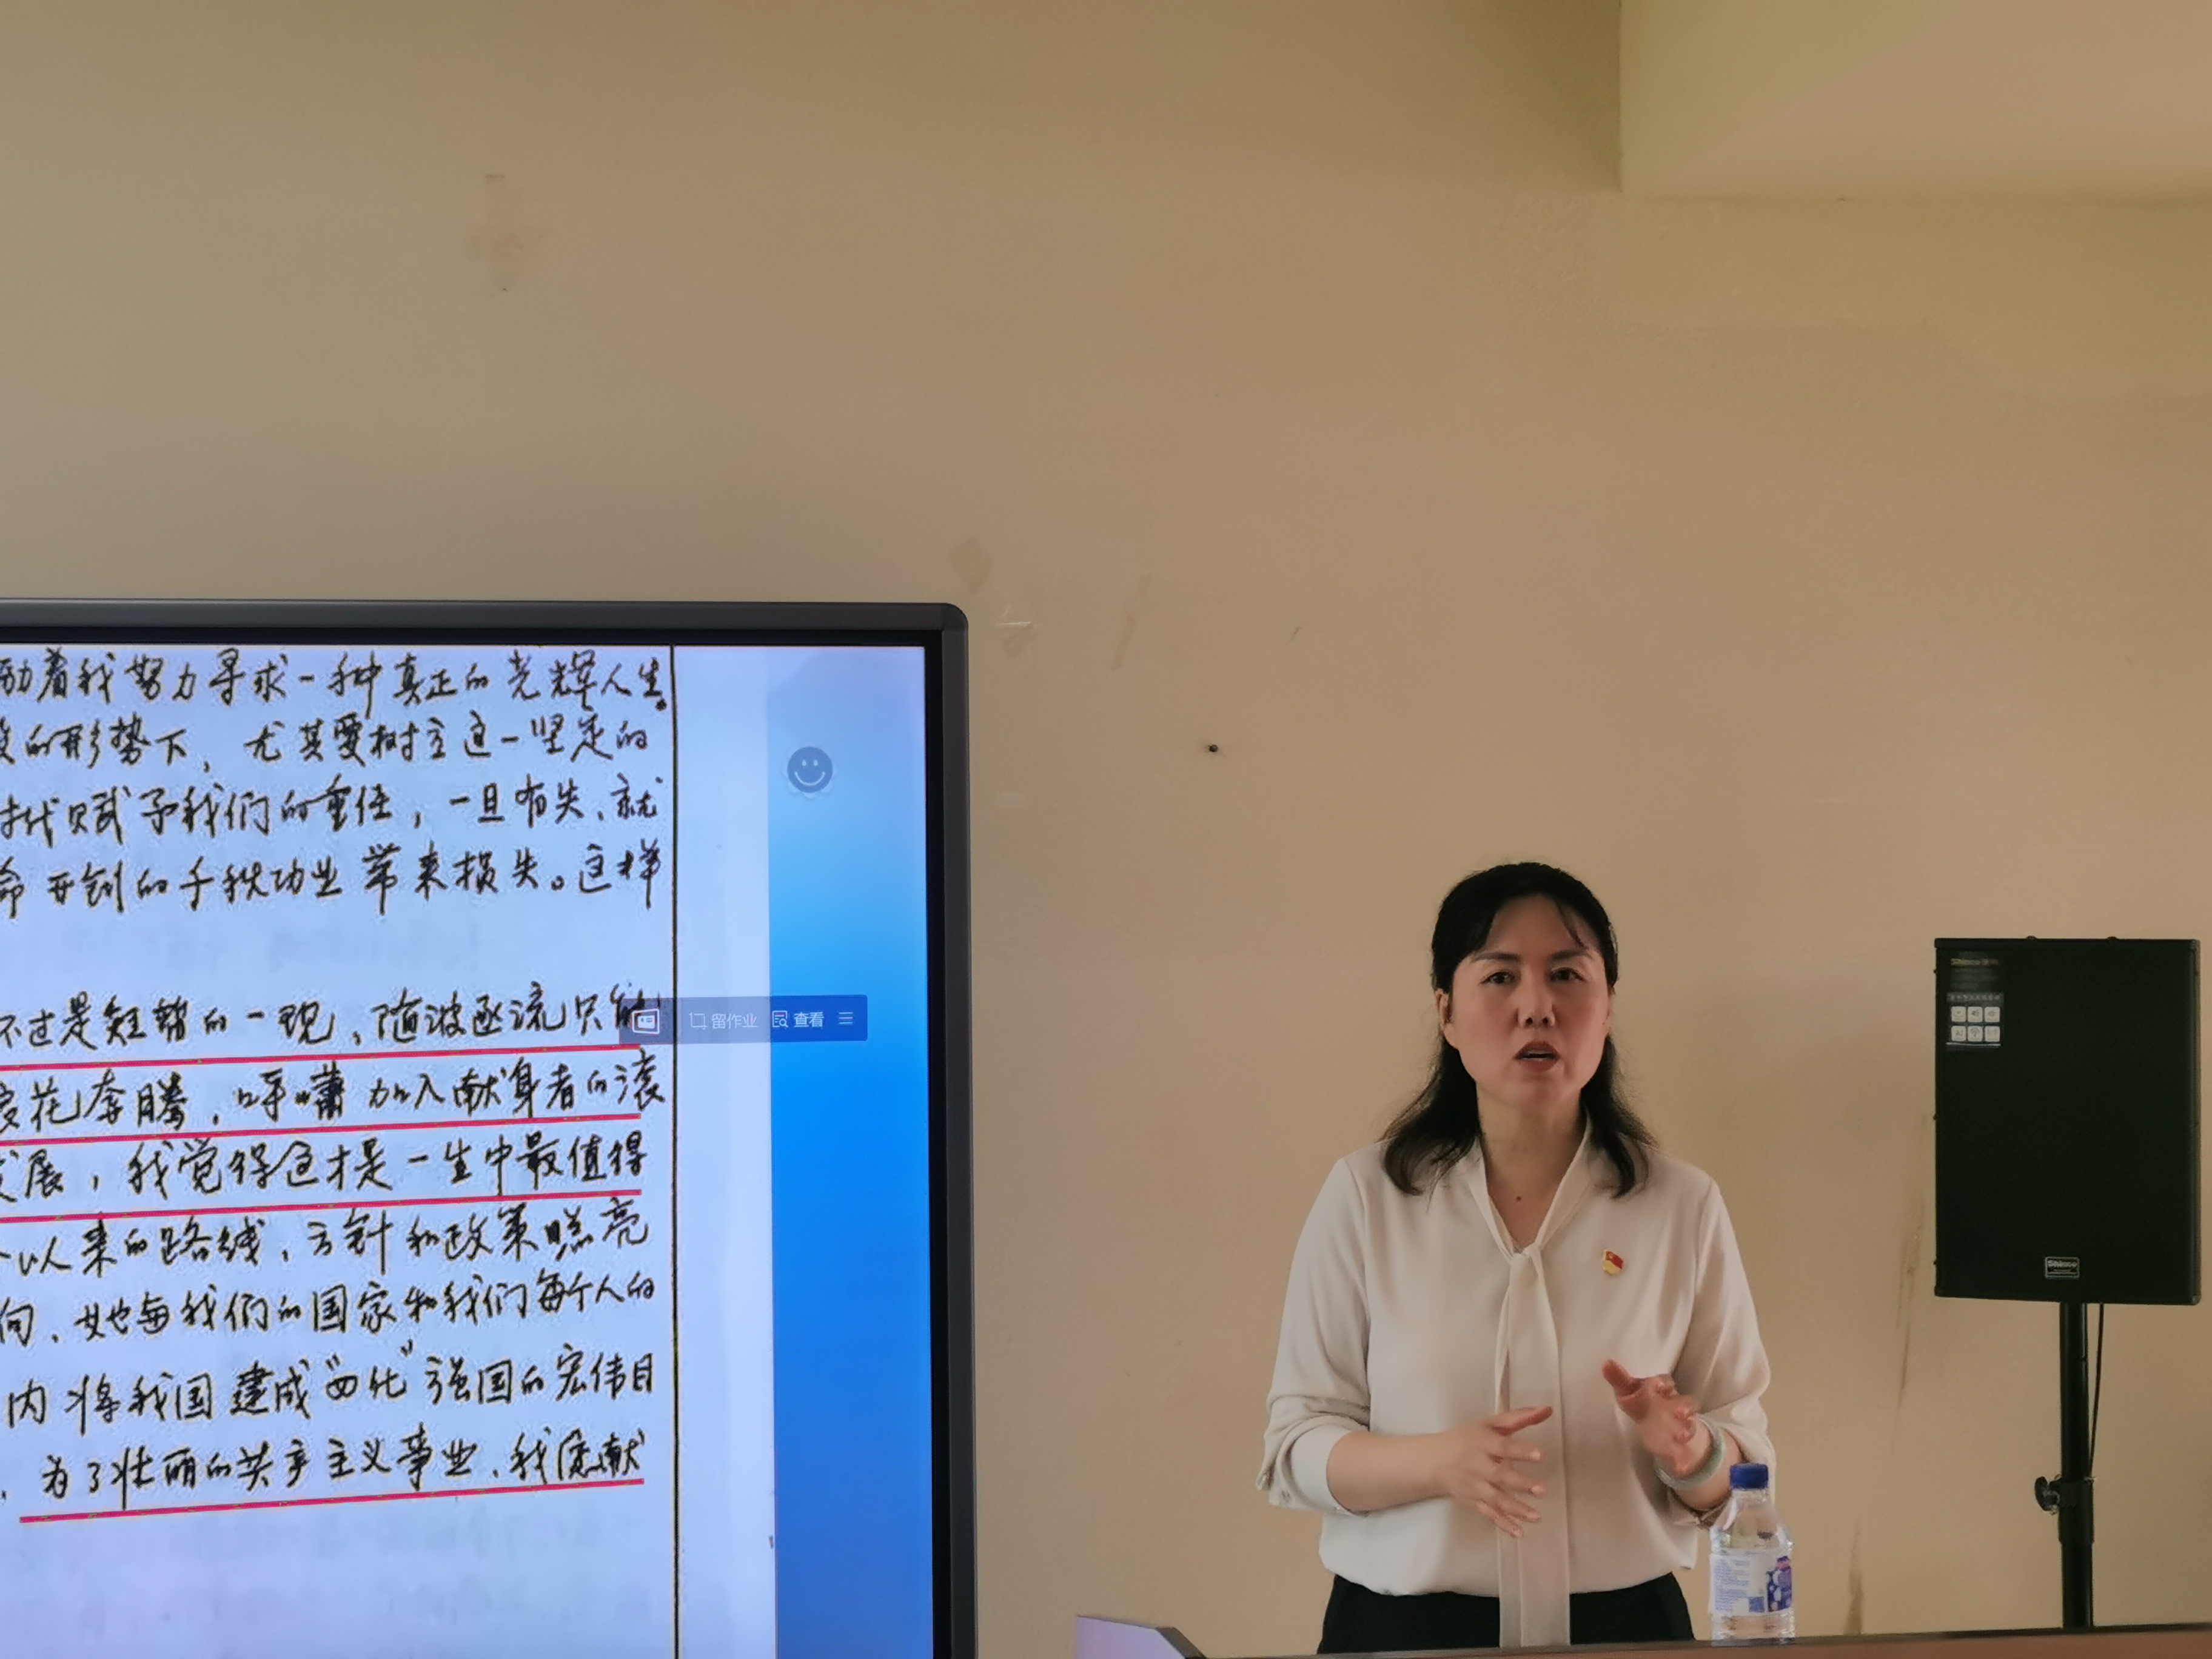 励着我努力寻求一种真正的光辉人生。
的形势下，尤其要树立这一坚定的
时代赋予我们的重任，一旦有失、就
命开创的千秋功业带来损失。这样
不过是短暂的一现，随波逐流只能
浪花奔腾，呼啸加入献身者的滚
发展，我觉得这才是一生中最值得
以来的路线、方针和政策照亮
向、她与我们的国家和我们每个人的
内将我国建成“四化”强国的宏伟目
、为了壮丽的共产主义事业、我愿献
留作业 查看
Shinco
Shinco